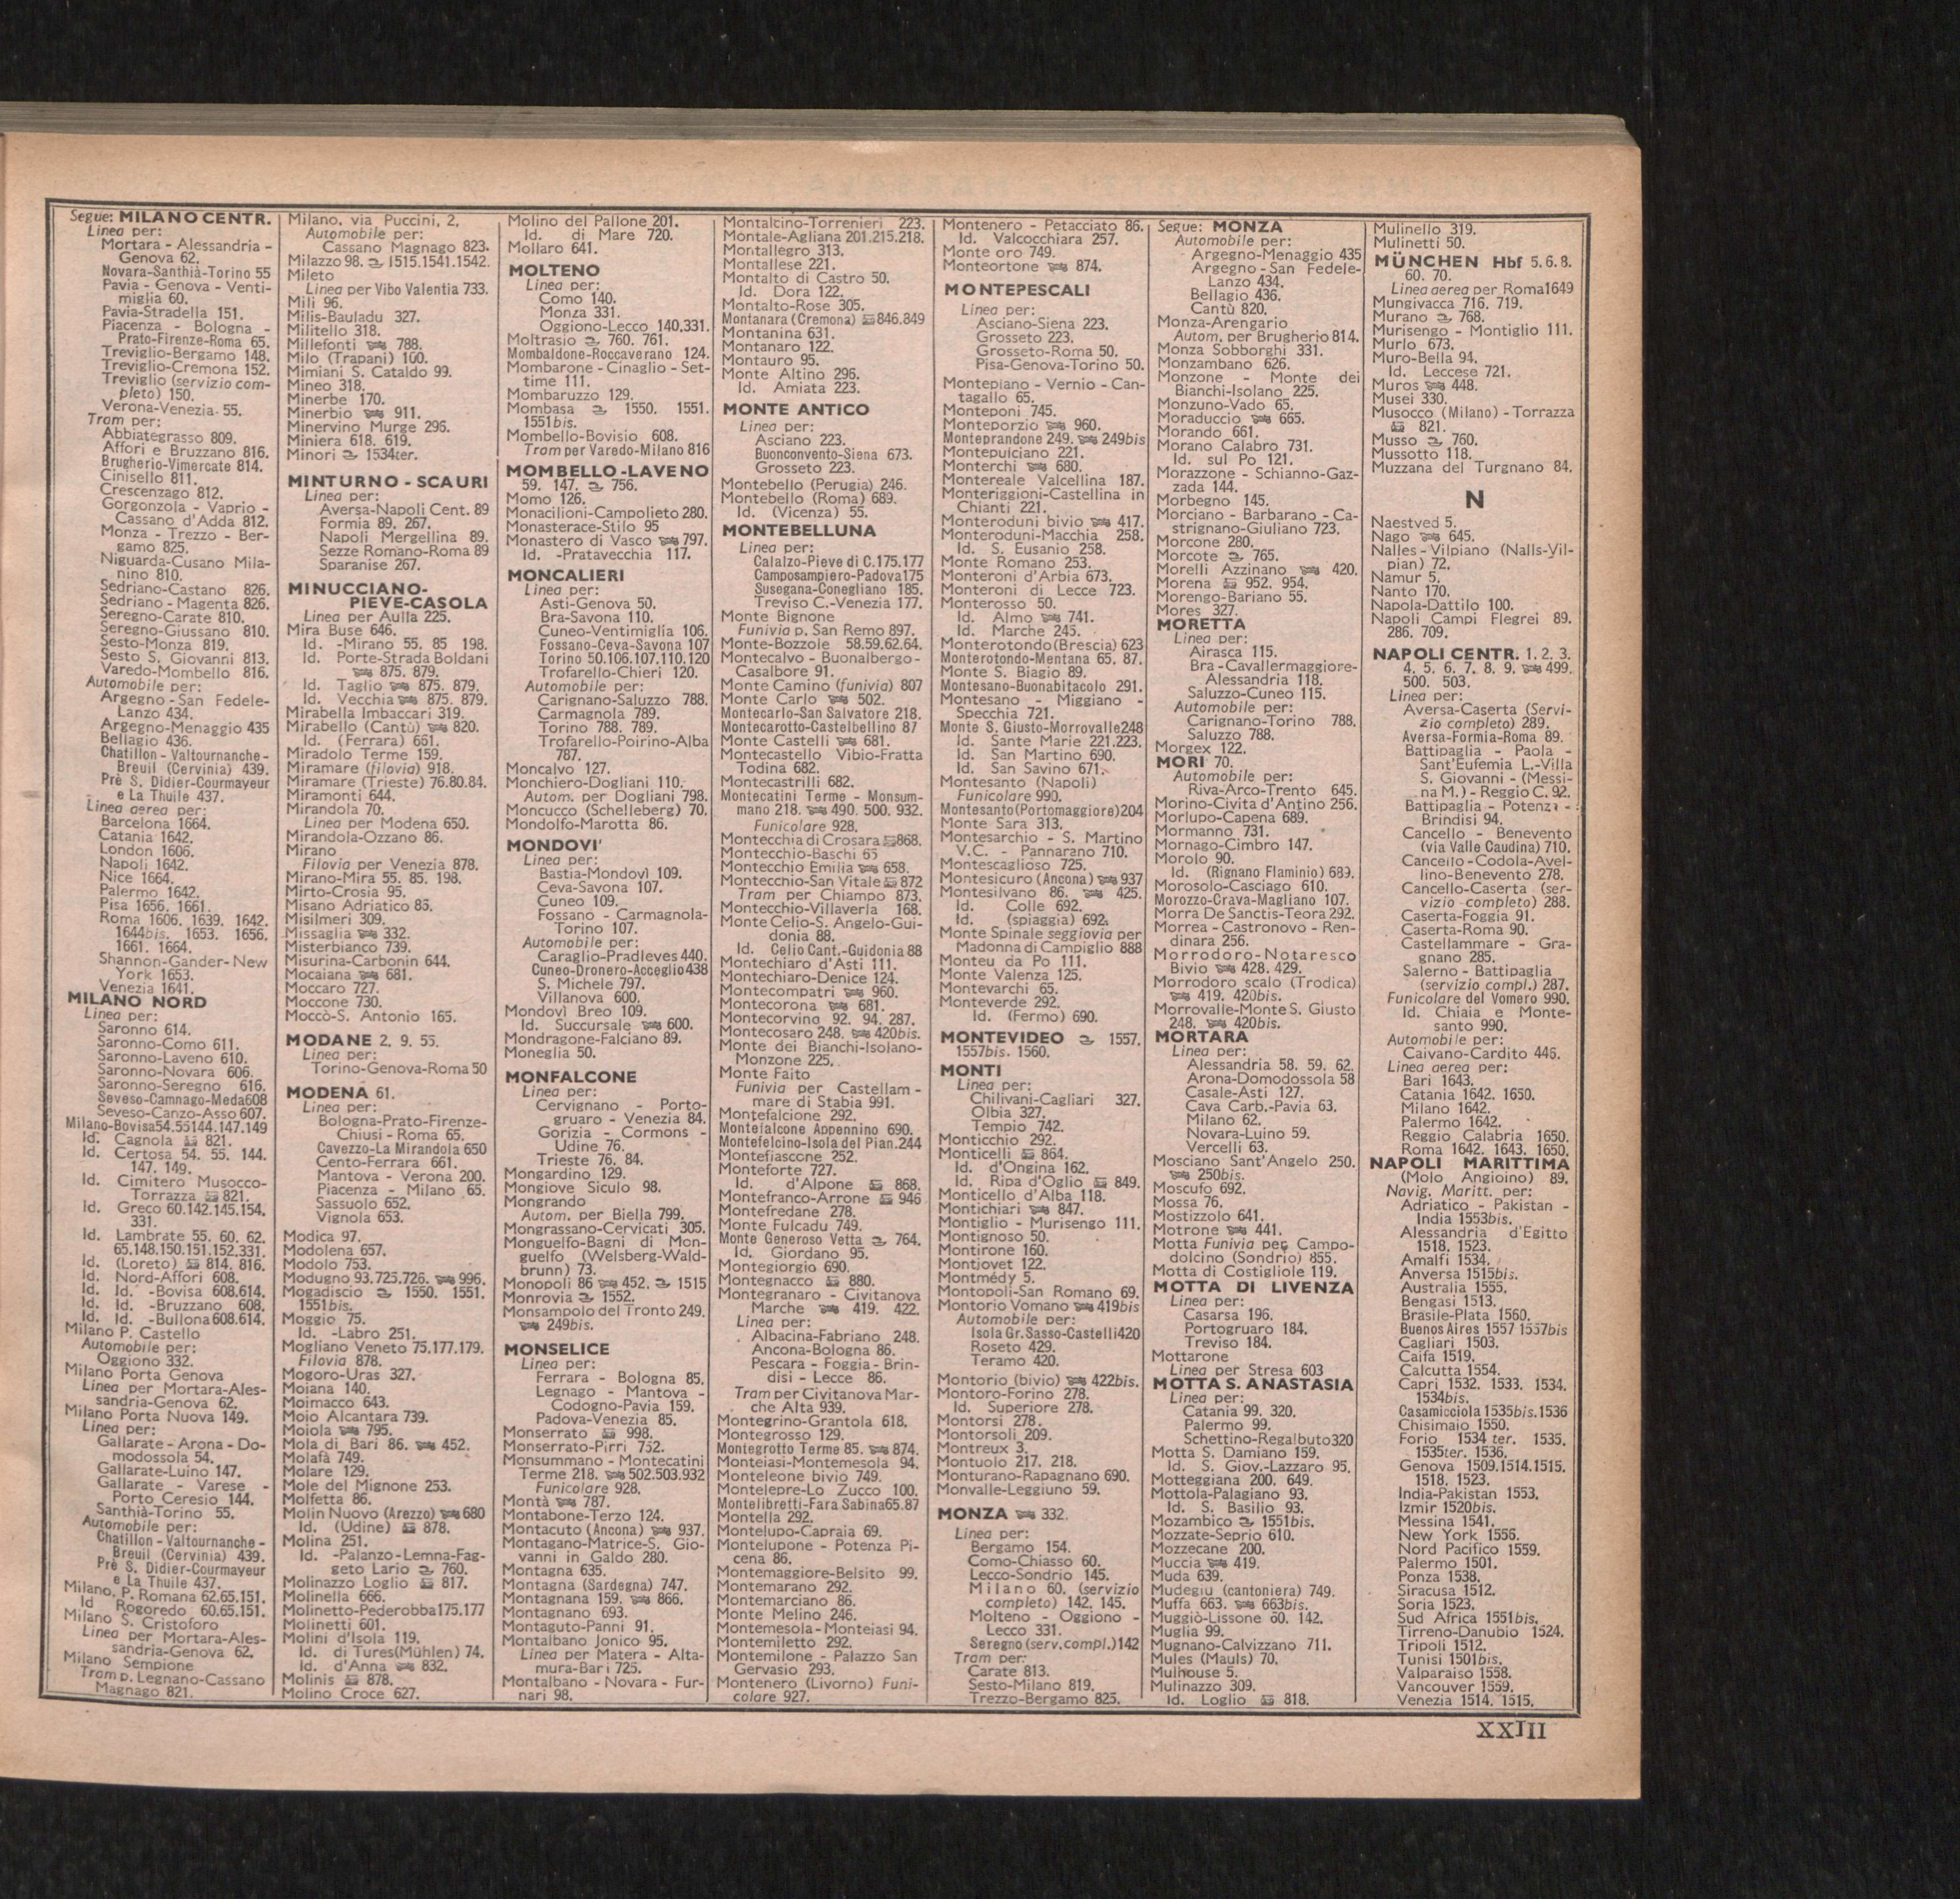 Segue: MILANO CENTR.
Linea per:
Mortara - Alessandria -
Genova 62.
Novara-Santhià-Torino 55
Pavia - Genova - Venti-
miglia 60.
Pavia-Stradella 151.
Piacenza - Bologna -
Prato-Firenze-Roma 65.
Treviglio-Bergamo 148.
Treviglio-Cremona 152.
Treviglio (servizio com-
pleto) 150.
Verona-Venezia 55.
Tram per:
Abbiategrasso 809.
Affori e Bruzzano 816.
Brugherio-Vimercate 814.
Cinisello 811.
Crescenzago 812.
Gorgonzola - Vaprio -
Cassano d'Adda 812.
Monza - Trezzo - Ber-
gamo 825.
Niguarda-Cusano Mila-
nino 810.
Sedriano-Castano 826.
Sedriano - Magenta 826.
Seregno-Carate 810.
Seregno-Giussano 810.
Sesto-Monza 819.
Sesto S. Giovanni 813.
Varedo-Mombello 816.
Automobile per:
Argegno - San Fedele-
Lanzo 434.
Argegno-Menaggio 435
Bellagio 436.
Chatillon - Valtournanche -
Breuil (Cervinia) 439.
Prè S. Didier-Courmayeur
e La Thuile 437.
Linea aerea per:
Barcelona 1664.
Catania 1642.
London 1606.
Napoli 1642.
Nice 1664.
Palermo 1642.
Pisa 1656. 1661.
Roma 1606. 1639. 1642.
1644bis. 1653. 1656.
1661. 1664.
Shannon-Gander-New
York 1653.
Venezia 1641.
MILANO NORD
Linea per:
Saronno 614.
Saronno-Como 611.
Saronno-Laveno 610.
Saronno-Novara 606.
Saronno-Seregno 616.
Seveso-Camnago-Meda608
Seveso-Canzo-Asso 607.
Milano-Bovisa54.55144.147.149
Id. Cagnola 821.
Id. Certosa 54. 55. 144.
147. 149.
Id. Cimitero Musocco-
Torrazza 821.
Id. Greco 60.142.145.154.
331.
Id. Lambrate 55. 60. 62.
65.148.150.151.152.331.
Id. (Loreto) 814. 816.
Id. Nord-Affori 608.
Id. Id. -Bovisa 608.614.
Id. Id. -Bruzzano 608.
Id. Id. -Bullona 608.614.
Milano P. Castello
Automobile per:
Oggiono 332.
Milano Porta Genova
Linea per Mortara-Ales-
sandria-Genova 62.
Milano Porta Nuova 149.
Linea per:
Gallarate - Arona - Do-
modossola 54.
Gallarate-Luino 147.
Gallarate - Varese -
Porto Ceresio 144.
Santhià-Torino 55.
Automobile per:
Chatillon - Valtournanche -
Breuil (Cervinia) 439.
Prè S. Didier-Courmayeur
e La Thuile 437.
Milano, P. Romana 62.65.151.
Id Rogoredo 60.65.151.
Milano S. Cristoforo
Linea per Mortara-Ales-
sandria-Genova 62.
Milano Sempione
Tram p. Legnano-Cassano
Magnago 821.
Milano, via Puccini, 2,
Automobile per:
Cassano Magnago 823.
Milazzo 98. 1515.1541.1542.
Mileto
Linea per Vibo Valentia 733.
Mili 96.
Milis-Bauladu 327.
Militello 318.
Millefonti 788.
Milo (Trapani) 100.
Mimiani S. Cataldo 99.
Mineo 318.
Minerbe 170.
Minerbio 911.
Minervino Murge 296.
Miniera 618. 619.
Minori 1534ter.
MINTURNO - SCAURI
Linea per:
Aversa-Napoli Cent. 89
Formia 89. 267.
Napoli Mergellina 89.
Sezze Romano-Roma 89
Sparanise 267.
MINUCCIANO-
PIEVE-CASOLA
Linea per Aulla 225.
Mira Buse 646.
Id. -Mirano 55. 85 198.
Id. Porte-Strada Boldani
875. 879.
Id. Taglio 875. 879.
Id. Vecchia 875. 879.
Mirabella Imbaccari 319.
Mirabello (Cantù) 820.
Id. (Ferrara) 661.
Miradolo Terme 159.
Miramare (filovia) 918.
Miramare (Trieste) 76.80.84.
Miramonti 644.
Mirandola 70.
Linea per Modena 650.
Mirandola-Ozzano 86.
Mirano
Filovia per Venezia 878.
Mirano-Mira 55. 85. 198.
Mirto-Crosia 95.
Misano Adriatico 85.
Misilmeri 309.
Missaglia 332.
Misterbianco 739.
Misurina-Carbonin 644.
Mocaiana 681.
Moccaro 727.
Moccone 730.
Moccò-S. Antonio 165.
MODANE 2. 9. 55.
Linea per:
Torino-Genova-Roma 50
MODENA 61.
Linea per:
Bologna-Prato-Firenze-
Chiusi - Roma 65.
Cavezzo-La Mirandola 650
Cento-Ferrara 661.
Mantova - Verona 200.
Piacenza - Milano 65.
Sassuolo 652.
Vignola 653.
Modica 97.
Modolena 657.
Modolo 753.
Modugno 93.725.726. 996.
Mogadiscio 1550. 1551.
1551bis.
Moggio 75.
Id. -Labro 251.
Mogliano Veneto 75.177.179.
Filovia 878.
Mogoro-Uras 327.
Moiana 140.
Moimacco 643.
Moio Alcantara 739.
Moiola 795.
Mola di Bari 86. 452.
Molafà 749.
Molare 129.
Mole del Mignone 253.
Molfetta 86.
Molin Nuovo (Arezzo) 680
Id. (Udine) 878.
Molina 251.
Id. -Palanzo-Lemna-Fag-
geto Lario 760.
Molinazzo Loglio 817.
Molinella 666.
Molinetto-Pederobba175.177
Molinetti 601.
Molini d'Isola 119.
Id. di Tures(Mühlen) 74.
Id. d'Anna 832.
Molinis 878.
Molino Croce 627.
Molino del Pallone 201.
Id. di Mare 720.
Mollaro 641.
MOLTENO
Linea per:
Como 140.
Monza 331.
Oggiono-Lecco 140.331.
Moltrasio 760. 761.
Mombaldone-Roccaverano 124.
Mombarone - Cinaglio - Set-
time 111.
Mombaruzzo 129.
Mombasa 1550. 1551.
1551bis.
Mombello-Bovisio 608.
Tram per Varedo-Milano 816
MOMBELLO-LAVENO
59. 147. 756.
Momo 126.
Monacilioni-Campolieto 280.
Monasterace-Stilo 95
Monastero di Vasco 797.
Id. -Pratavecchia 117.
MONCALIERI
Linea per:
Asti-Genova 50.
Bra-Savona 110.
Cuneo-Ventimiglia 106.
Fossano-Ceva-Savona 107
Torino 50.106.107.110.120
Trofarello-Chieri 120.
Automobile per:
Carignano-Saluzzo 788.
Carmagnola 789.
Torino 788. 789.
Trofarello-Poirino-Alba
787.
Moncalvo 127.
Monchiero-Dogliani 110.
Autom. per Dogliani 798.
Moncucco (Schelleberg) 70.
Mondolfo-Marotta 86.
MONDOVI'
Linea per:
Bastia-Mondovì 109.
Ceva-Savona 107.
Cuneo 109.
Fossano - Carmagnola-
Torino 107.
Automobile per:
Caraglio-Pradleves 440.
Cuneo-Dronero-Acceglio438
S. Michele 797.
Villanova 600.
Mondovì Breo 109.
Id. Succursale 600.
Mondragone-Falciano 89.
Moneglia 50.
MONFALCONE
Linea per:
Cervignano - Porto-
gruaro - Venezia 84.
Gorizia - Cormons -
Udine 76.
Trieste 76. 84.
Mongardino 129.
Mongiove Siculo 98.
Mongrando
Autom. per Biella 799.
Mongrassano-Cervicati 305.
Monguelfo-Bagni di Mon-
guelfo (Welsberg-Wald-
brunn) 73.
Monopoli 86 452. 1515
Monrovia 1552.
Monsampolo del Tronto 249.
249bis.
MONSELICE
Linea per:
Ferrara - Bologna 85.
Legnago - Mantova -
Codogno-Pavia 159.
Padova-Venezia 85.
Monserrato 998.
Monserrato-Pirri 752.
Monsummano - Montecatini
Terme 218. 502.503.932
Funicolare 928.
Montà 787.
Montabone-Terzo 124.
Montacuto (Ancona) 937.
Montagano-Matrice-S. Gio-
vanni in Galdo 280.
Montagna 635.
Montagna (Sardegna) 747.
Montagnana 159. 866.
Montagnano 693.
Montaguto-Panni 91.
Montalbano Jonico 95.
Linea per Matera - Alta-
mura-Bari 725.
Montalbano - Novara - Fur-
nari 98.
Montalcino-Torrenieri 223.
Montale-Agliana 201.215.218.
Montallegro 313.
Montallese 221.
Montalto di Castro 50.
Id. Dora 122.
Montalto-Rose 305.
Montanara (Cremona) 846.849
Montanina 631.
Montanaro 122.
Montauro 95.
Monte Altino 296.
Id. Amiata 223.
MONTE ANTICO
Linea per:
Asciano 223.
Buonconvento-Siena 673.
Grosseto 223.
Montebello (Perugia) 246.
Montebello (Roma) 689.
Id. (Vicenza) 55.
MONTEBELLUNA
Linea per:
Calalzo-Pieve di C.175.177
Camposampiero-Padova175
Susegana-Conegliano 185.
Treviso C.-Venezia 177.
Monte Bignone
Funivia p. San Remo 897.
Monte-Bozzole 58.59.62.64.
Montecalvo - Buonalbergo -
Casalbore 91.
Monte Camino (funivia) 807
Monte Carlo 502.
Montecarlo-San Salvatore 218.
Montecarotto-Castelbellino 87
Monte Castelli 681.
Montecastello Vibio-Fratta
Todina 682.
Montecastrilli 682.
Montecatini Terme - Monsum-
mano 218. 490. 500. 932.
Funicolare 928.
Montecchia di Crosara 868.
Montecchio-Baschi 65
Montecchio Emilia 658.
Montecchio-San Vitale 872
Tram per Chiampo 873.
Montecchio-Villaverla 168.
Monte Celio-S. Angelo-Gui-
donia 88.
Id. Celio Cant.-Guidonia 88
Montechiaro d'Asti 111.
Montechiaro-Denice 124.
Montecompatri 960.
Montecorona 681.
Montecorvina 92. 94. 287.
Montecosaro 248. 420bis.
Monte dei Bianchi-Isolano-
Monzone 225.
Monte Faito
Funivia per Castellam -
mare di Stabia 991.
Montefalcione 292.
Montefalcone Appennino 690.
Montefelcino-Isola del Pian.244
Montefiascone 252.
Monteforte 727.
Id. d'Alpone 868.
Montefranco-Arrone 946
Montefredane 278.
Monte Fulcadu 749.
Monte Generoso Vetta 764.
Id. Giordano 95.
Montegiorgio 690.
Montegnacco 880.
Montegranaro - Civitanova
Marche 419. 422.
Linea per:
Albacina-Fabriano 248.
Ancona-Bologna 86.
Pescara - Foggia - Brin-
disi - Lecce 86.
Tram per Civitanova Mar-
che Alta 939.
Montegrino-Grantola 618.
Montegrosso 129.
Montegrotto Terme 85. 874.
Monteiasi-Montemesola 94.
Monteleone bivio 749.
Montelepre-Lo Zucco 100.
Montelibretti-Fara Sabina65.87
Montella 292.
Montelupo-Capraia 69.
Montelupone - Potenza Pi-
cena 86.
Montemaggiore-Belsito 99.
Montemarano 292.
Montemarciano 86.
Monte Melino 246.
Montemesola-Monteiasi 94.
Montemiletto 292.
Montemilone - Palazzo San
Gervasio 293.
Montenero (Livorno) Funi-
colare 927.
Montenero - Petacciato 86.
Id. Valcocchiara 257.
Monte oro 749.
Monteortone 874.
MONTEPESCALI
Linea per:
Asciano-Siena 223.
Grosseto 223.
Grosseto-Roma 50.
Pisa-Genova-Torino 50.
Montepiano - Vernio - Can-
tagallo 65.
Monteponi 745.
Monteporzio 960.
Monteprandone 249. 249bis
Montepulciano 221.
Monterchi 680.
Montereale Valcellina 187.
Monteriggioni-Castellina in
Chianti 221.
Monteroduni bivio 417.
Monteroduni-Macchia 258.
Id. S. Eusanio 258.
Monte Romano 253.
Monteroni d'Arbia 673.
Monteroni di Lecce 723.
Monterosso 50.
Id. Almo 741.
Id. Marche 245.
Monterotondo(Brescia) 623
Monterotondo-Mentana 65. 87.
Monte S. Biagio 89.
Montesano-Buonabitacolo 291.
Montesano - Miggiano -
Specchia 721.
Monte S. Giusto-Morrovalle248
Id. Sante Marie 221.223.
Id. San Martino 690.
Id. San Savino 671.
Montesanto (Napoli)
Funicolare 990.
Montesanto(Portomaggiore)204
Monte Sara 313.
Montesarchio - S. Martino
V.C. - Pannarano 710.
Montescaglioso 725.
Montesicuro (Ancona) 937
Montesilvano 86. 425.
Id. Colle 692.
Id. (spiaggia) 692.
Monte Spinale seggiovia per
Madonna di Campiglio 888
Monteu da Po 111.
Monte Valenza 125.
Montevarchi 65.
Monteverde 292.
Id. (Fermo) 690.
MONTEVIDEO 1557.
1557bis. 1560.
MONTI
Linea per:
Chilivani-Cagliari 327.
Olbia 327.
Tempio 742.
Monticchio 292.
Monticelli 864.
Id. d'Ongina 162.
Id. Ripa d'Oglio 849.
Monticello d'Alba 118.
Montichiari 847.
Montiglio - Murisengo 111.
Montignoso 50.
Montirone 160.
Montjovet 122.
Montmédy 5.
Montopoli-San Romano 69.
Montorio Vomano 419bis
Automobile per:
Isola Gr.Sasso-Castelli420
Roseto 429.
Teramo 420.
Montorio (bivio) 422bis.
Montoro-Forino 278.
Id. Superiore 278.
Montorsi 278.
Montorsoli 209.
Montreux 3.
Montuolo 217. 218.
Monturano-Rapagnano 690.
Monvalle-Leggiuno 59.
MONZA 332.
Linea per:
Bergamo 154.
Como-Chiasso 60.
Lecco-Sondrio 145.
Milano 60. (servizio
completo) 142. 145.
Molteno - Oggiono -
Lecco 331.
Seregno (serv.compl.)142
Tram per:
Carate 813.
Sesto-Milano 819.
Trezzo-Bergamo 825.
Segue: MONZA
Automobile per:
Argegno-Menaggio 435
Argegno - San Fedele-
Lanzo 434.
Bellagio 436.
Cantù 820.
Monza-Arengario
Autom. per Brugherio 814.
Monza Sobborghi 331.
Monzambano 626.
Monzone - Monte dei
Bianchi-Isolano 225.
Monzuno-Vado 65.
Moraduccio 665.
Morando 661.
Morano Calabro 731.
Id. sul Po 121.
Morazzone - Schianno-Gaz-
zada 144.
Morbegno 145.
Morciano - Barbarano - Ca-
strignano-Giuliano 723.
Morcone 280.
Morcote 765.
Morelli Azzinano 420.
Morena 952. 954.
Morengo-Bariano 55.
Mores 327.
MORETTA
Linea per:
Airasca 115.
Bra - Cavallermaggiore-
Alessandria 118.
Saluzzo-Cuneo 115.
Automobile per:
Carignano-Torino 788.
Saluzzo 788.
Morgex 122.
MORI 70.
Automobile per:
Riva-Arco-Trento 645.
Morino-Civita d'Antino 256.
Morlupo-Capena 689.
Mormanno 731.
Mornago-Cimbro 147.
Morolo 90.
Id. (Rignano Flaminio) 689.
Morosolo-Casciago 610.
Morozzo-Crava-Magliano 107.
Morra De Sanctis-Teora 292.
Morrea - Castronovo - Ren-
dinara 256.
Morrodoro-Notaresco
Bivio 428. 429.
Morrodoro scalo (Trodica)
419. 420bis.
Morrovalle-Monte S. Giusto
248. 420bis.
MORTARA
Linea per:
Alessandria 58. 59. 62.
Arona-Domodossola 58
Casale-Asti 127.
Cava Carb.-Pavia 63.
Milano 62.
Novara-Luino 59.
Vercelli 63.
Mosciano Sant'Angelo 250.
250bis.
Moscufo 692.
Mossa 76.
Mostizzolo 641.
Motrone 441.
Motta Funivia per Campo-
dolcino (Sondrio) 855.
Motta di Costigliole 119.
MOTTA DI LIVENZA
Linea per:
Casarsa 196.
Portogruaro 184.
Treviso 184.
Mottarone
Linea per Stresa 603
MOTTA S. ANASTASIA
Linea per:
Catania 99. 320.
Palermo 99.
Schettino-Regalbuto320
Motta S. Damiano 159.
Id. S. Giov.-Lazzaro 95.
Motteggiana 200. 649.
Mottola-Palagiano 93.
Id. S. Basilio 93.
Mozambico 1551bis.
Mozzate-Seprio 610.
Mozzecane 200.
Muccia 419.
Muda 639.
Mudegiu (cantoniera) 749.
Muffa 663. 663bis.
Muggiò-Lissone 60. 142.
Muglia 99.
Mugnano-Calvizzano 711.
Mules (Mauls) 70.
Mulhouse 5.
Mulinazzo 309.
Id. Loglio 818.
Mulinello 319.
Mulinetti 50.
MÜNCHEN Hbf 5.6.8.
60. 70.
Linea aerea per Roma1649
Mungivacca 716. 719.
Murano 768.
Murisengo - Montiglio 111.
Murlo 673.
Muro-Bella 94.
Id. Leccese 721.
Muros 448.
Musei 330.
Musocco (Milano) - Torrazza
821.
Musso 760.
Mussotto 118.
Muzzana del Turgnano 84.
N
Naestved 5.
Nago 645.
Nalles - Vilpiano (Nalls-Vil-
pian) 72.
Namur 5.
Nanto 170.
Napola-Dattilo 100.
Napoli Campi Flegrei 89.
286. 709.
NAPOLI CENTR. 1. 2. 3.
4. 5. 6. 7. 8. 9. 499.
500. 503.
Linea per:
Aversa-Caserta (Servi-
zio completo) 289.
Aversa-Formia-Roma 89.
Battipaglia - Paola -
Sant'Eufemia L.-Villa
S. Giovanni - (Messi-
na M.) - Reggio C. 92.
Battipaglia - Potenza -
Brindisi 94.
Cancello - Benevento
(via Valle Caudina) 710.
Cancello-Codola-Avel-
lino-Benevento 278.
Cancello-Caserta (ser-
vizio completo) 288.
Caserta-Foggia 91.
Caserta-Roma 90.
Castellammare - Gra-
gnano 285.
Salerno - Battipaglia
(servizio compl.) 287.
Funicolare del Vomero 990.
Id. Chiaia e Monte-
santo 990.
Automobile per:
Caivano-Cardito 446.
Linea aerea per:
Bari 1643.
Catania 1642. 1650.
Milano 1642.
Palermo 1642.
Reggio Calabria 1650.
Roma 1642. 1643. 1650.
NAPOLI MARITTIMA
(Molo Angioino) 89.
Navig. Maritt. per:
Adriatico - Pakistan -
India 1553bis.
Alessandria d'Egitto
1518. 1523.
Amalfi 1534.
Anversa 1515bis.
Australia 1555.
Bengasi 1513.
Brasile-Plata 1560.
Buenos Aires 1557 1557bis
Cagliari 1503.
Caifa 1519.
Calcutta 1554.
Capri 1532. 1533. 1534.
1534bis.
Casamicciola 1535bis.1536
Chisimaio 1550.
Forio 1534 ter. 1535.
1535ter. 1536.
Genova 1509.1514.1515.
1518. 1523.
India-Pakistan 1553.
Izmir 1520bis.
Messina 1541.
New York 1556.
Nord Pacifico 1559.
Palermo 1501.
Ponza 1538.
Siracusa 1512.
Soria 1523.
Sud Africa 1551bis.
Tirreno-Danubio 1524.
Tripoli 1512.
Tunisi 1501bis.
Valparaiso 1558.
Vancouver 1559.
Venezia 1514. 1515.
XXIII